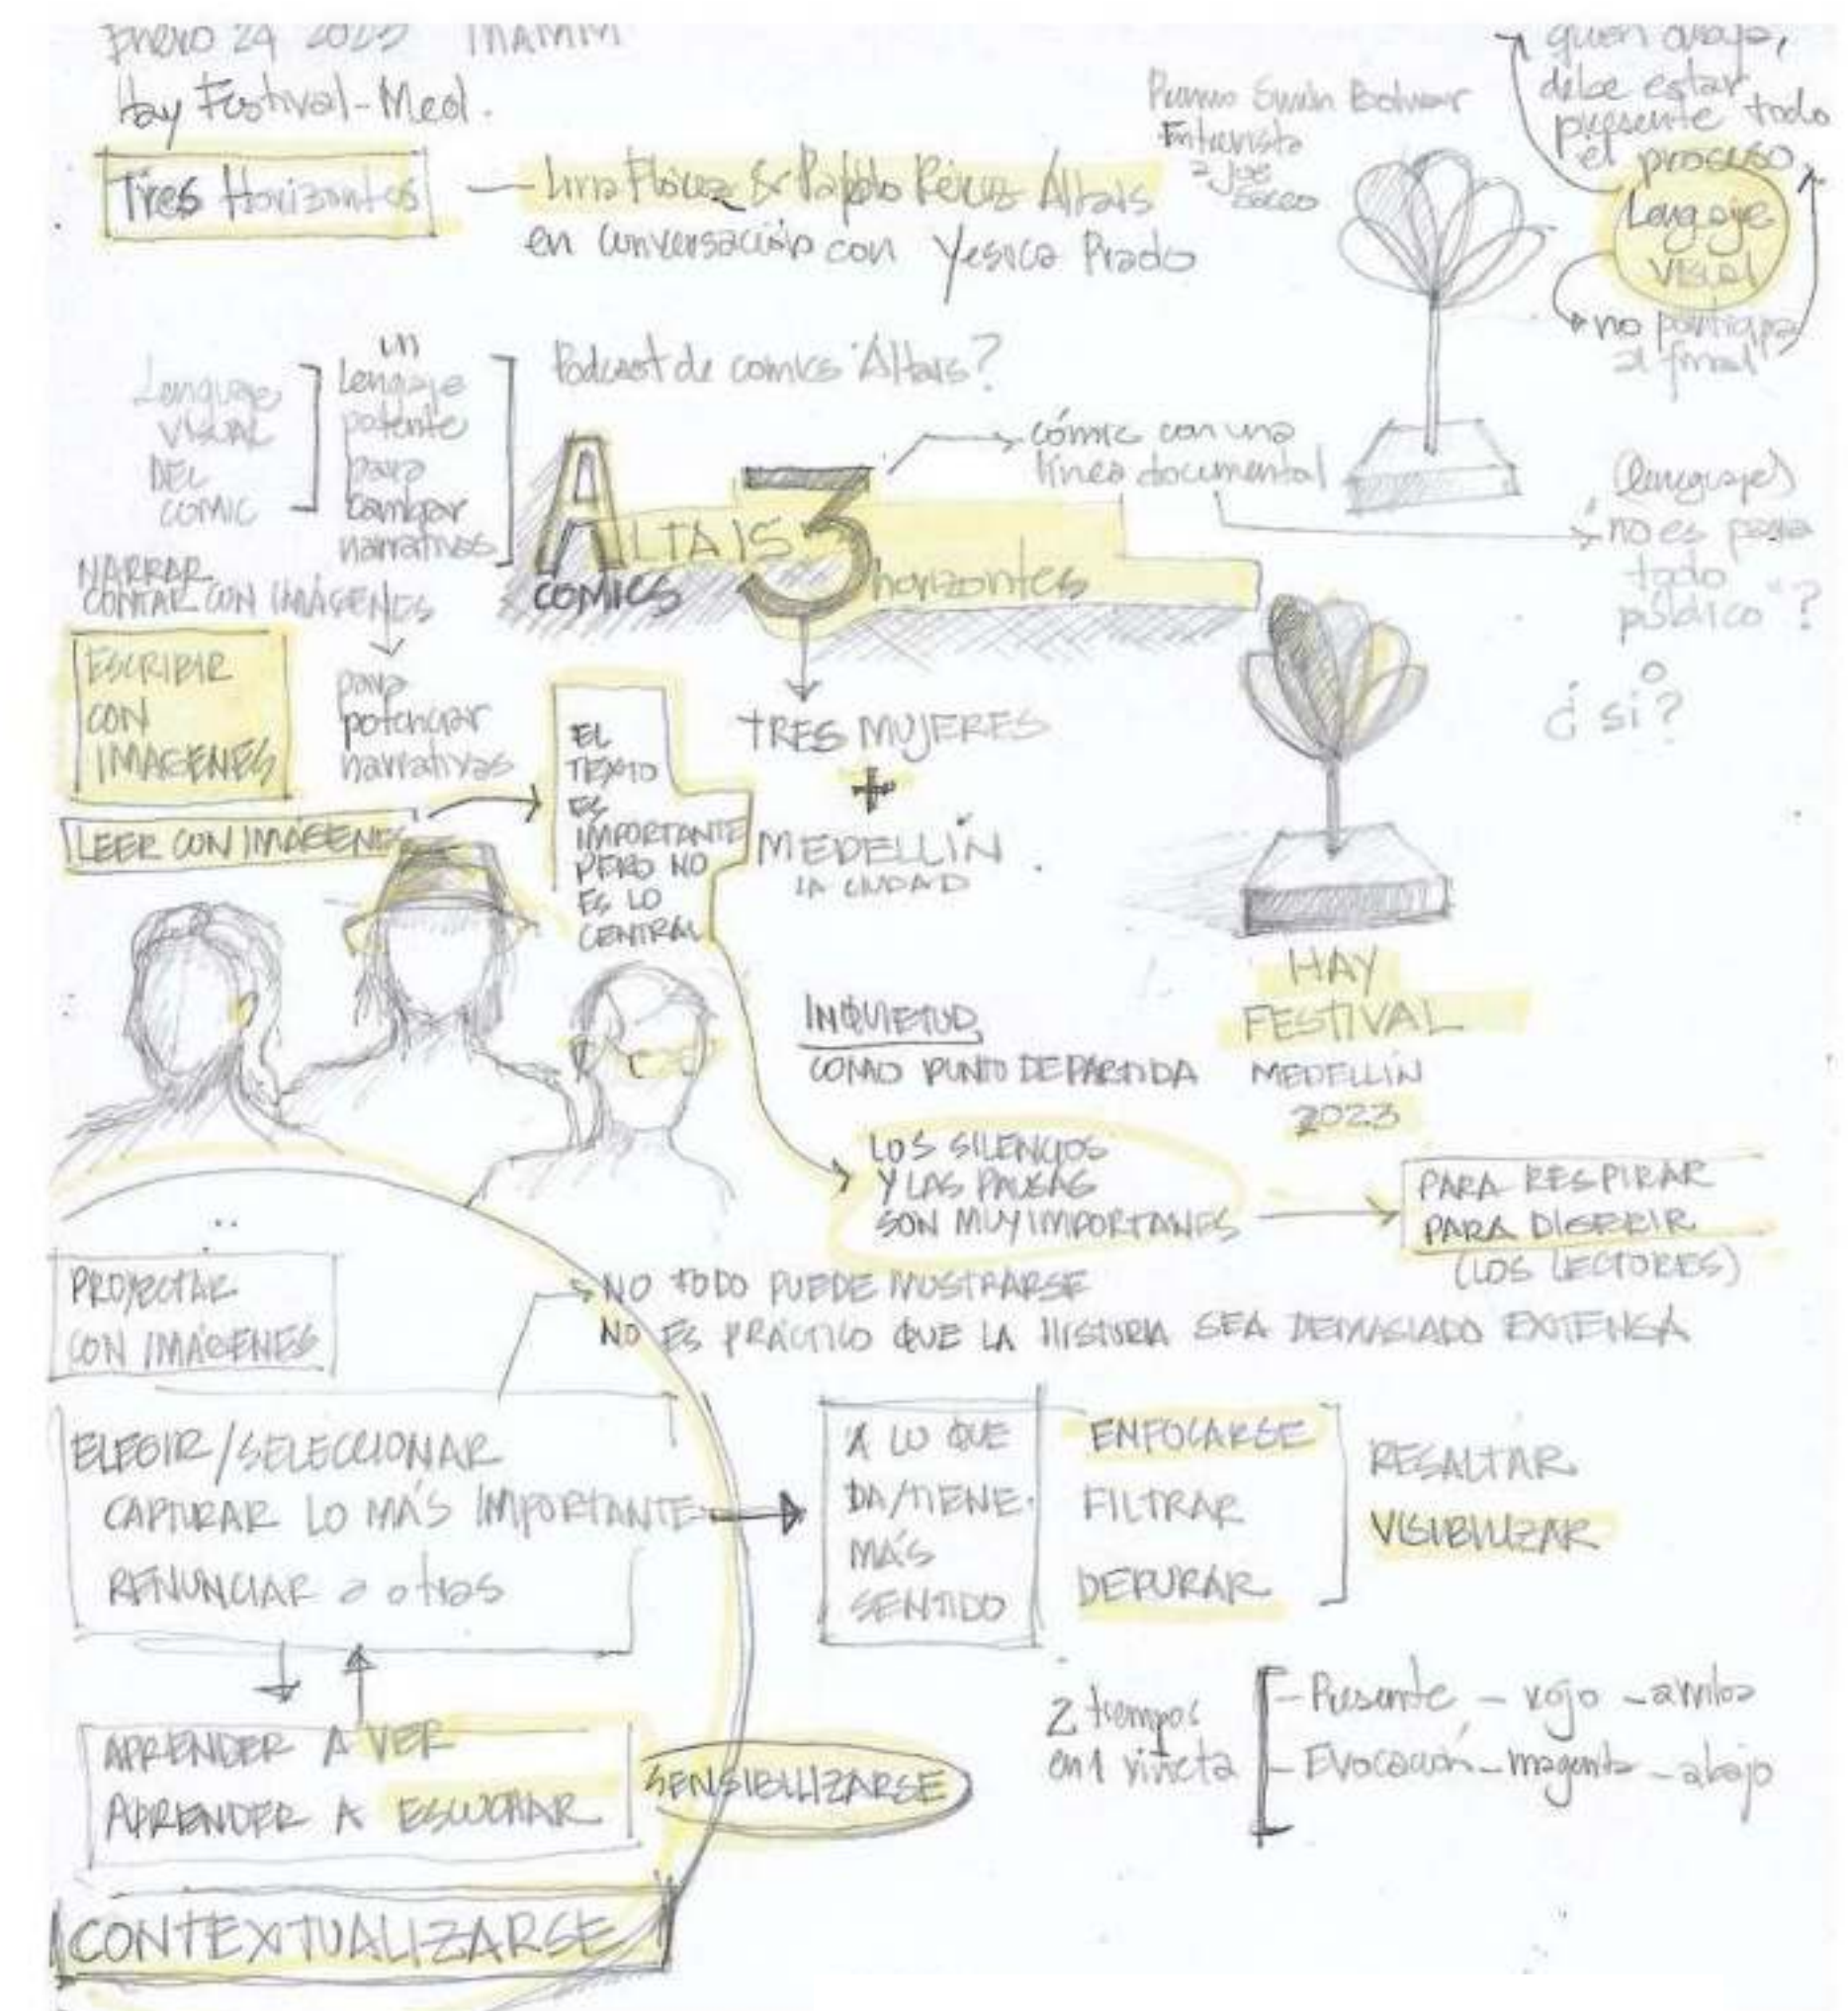 Enero 24 2023 MAMM
Hay Festival-Med.
Tres Horizontes
Lina Flórez & Pablo Pérez Altais
en conversación con Yesica Prado
Premio Simón Bolívar
Entrevista
a Joe
Sacco
quien
debe estar
presente todo
el proceso
Lenguaje
visual
no participa
al final
Lenguaje
VISUAL
DEL
COMIC
un
Lenguaje
potente
para
cambiar
narrativas
Podcast de comics Altais?
ALTAIS 3
COMICS
horizontes
cómic con una
línea documental
(lenguaje)
no es para
todo
público"?
o
¿ si ?
NARRAR
CONTAR CON IMÁGENES
para
potenciar
narrativas
ESCRIBIR
CON
IMAGENES
LEER CON IMÁGENES
EL
TEXTO
ES
IMPORTANTE
PERO NO
ES LO
CENTRAL
TRES MUJERES
+
MEDELLÍN
LA CIUDAD
HAY
FESTIVAL
MEDELLÍN
2023
INQUIETUD
COMO PUNTO DE PARTIDA
LOS SILENCIOS
Y LAS PAUSAS
SON MUY IMPORTANES
PARA RESPIRAR
PARA DIGERIR
(LOS LECTORES)
PROYECTAR
CON IMÁGENES
NO TODO PUEDE MUSTRARSE
NO ES PRÁCTICO QUE LA HISTORIA SEA DEMASIADO EXTENSA
ELEGIR/SELECCIONAR
CAPTURAR LO MÁS IMPORTANTE
RENUNCIAR a otras
A LO QUE
DA/TIENE
MÁS
SENTIDO
ENFOCARSE
FILTRAR
DEPURAR
RESALTAR
VISIBILIZAR
APRENDER A VER
APRENDER A ESCUCHAR
SENSIBILIZARSE
2 tiempos
en 1 viñeta
- Presente - rojo - arriba
- Evocación - magenta - abajo
CONTEXTUALIZARSE